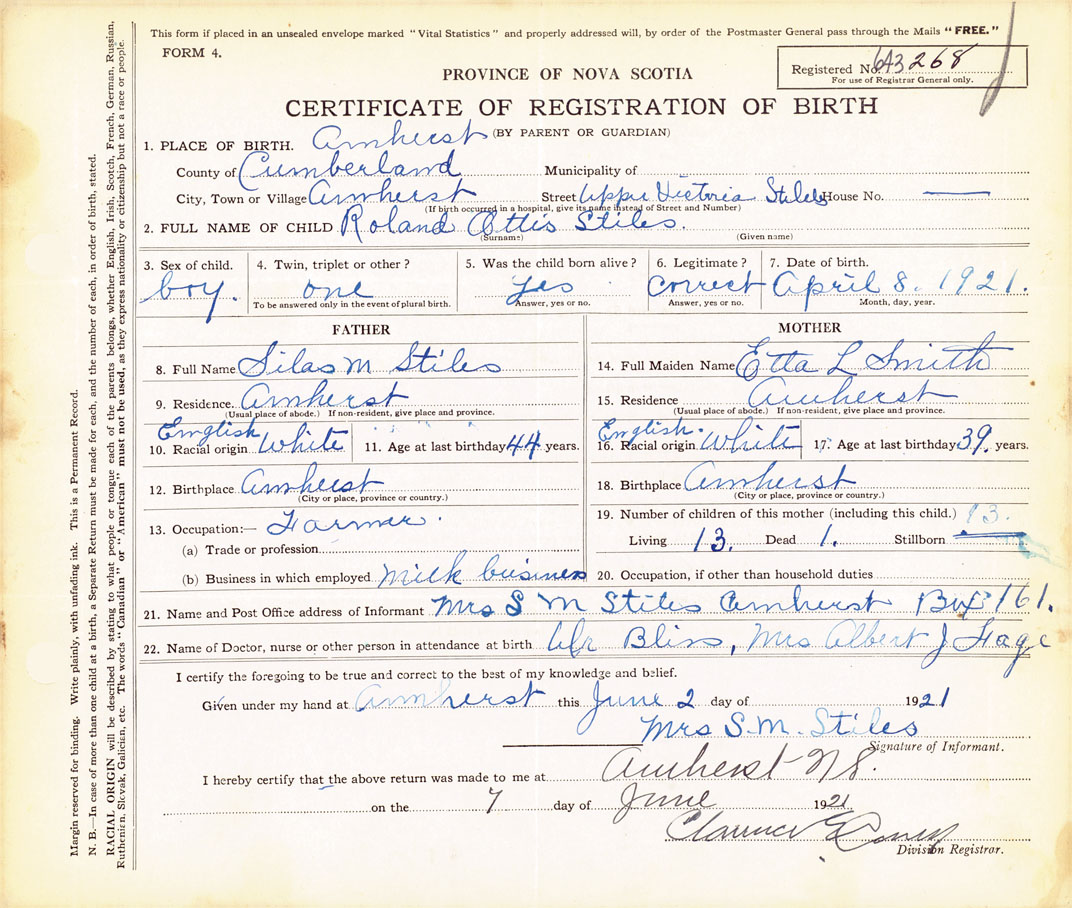 This form if placed in an unsealed envelope marked "Vital Statistics" and properly addressed will, by order of the Postmaster General pass through the Mails "FREE."
FORM 4.
Registered No. 643268
For use of Registrar General only.
PROVINCE OF NOVA SCOTIA
CERTIFICATE OF REGISTRATION OF BIRTH
(BY PARENT OR GUARDIAN)
1. PLACE OF BIRTH. Amherst
County of Cumberland Municipality of
City, Town or Village Amherst Street Uppr Victoria Stiles House No. —
(If birth occurred in a hospital, give its name instead of Street and Number)
2. FULL NAME OF CHILD Roland Ottis Stiles.
(Surname) (Given name)
3. Sex of child. boy.
4. Twin, triplet or other? one
To be answered only in the event of plural birth.
5. Was the child born alive? yes
Answer, yes or no.
6. Legitimate? correct
Answer, yes or no.
7. Date of birth. April 8. 1921.
Month, day, year.
FATHER
8. Full Name Silas M Stiles
9. Residence. Amherst
(Usual place of abode.) If non-resident, give place and province.
10. Racial origin English White
11. Age at last birthday 44 years.
12. Birthplace Amherst
(City or place, province or country.)
13. Occupation:— Farmer.
(a) Trade or profession
(b) Business in which employed milk business
MOTHER
14. Full Maiden Name Etta L Smith
15. Residence Amherst
(Usual place of abode.) If non-resident, give place and province.
16. Racial origin English. White
17. Age at last birthday 39. years.
18. Birthplace Amherst
(City or place, province or country.)
19. Number of children of this mother (including this child.) 13.
Living 13. Dead 1. Stillborn —
20. Occupation, if other than household duties
21. Name and Post Office address of Informant Mrs S M Stiles Amherst Box 161.
22. Name of Doctor, nurse or other person in attendance at birth Dr Bliss, Mrs Albert J
I certify the foregoing to be true and correct to the best of my knowledge and belief.
Given under my hand at Amherst this June 2 day of 1921
Mrs S.M. Stiles
Signature of Informant.
I hereby certify that the above return was made to me at Amherst N S.
on the 7 day of June 1921
Clarence
Division Registrar.
Margin reserved for binding. Write plainly, with unfading ink. This is a Permanent Record.
N. B.—In case of more than one child at a birth, a Separate Return must be made for each, and the number of each, in order of birth, stated.
RACIAL ORIGIN will be described by stating to what people or tongue each of the parents belongs, whether English, Irish, Scotch, French, German, Russian,
Ruthenian, Slovak, Galician, etc. The words "Canadian" or "American" must not be used, as they express nationality or citizenship but not a race or people.